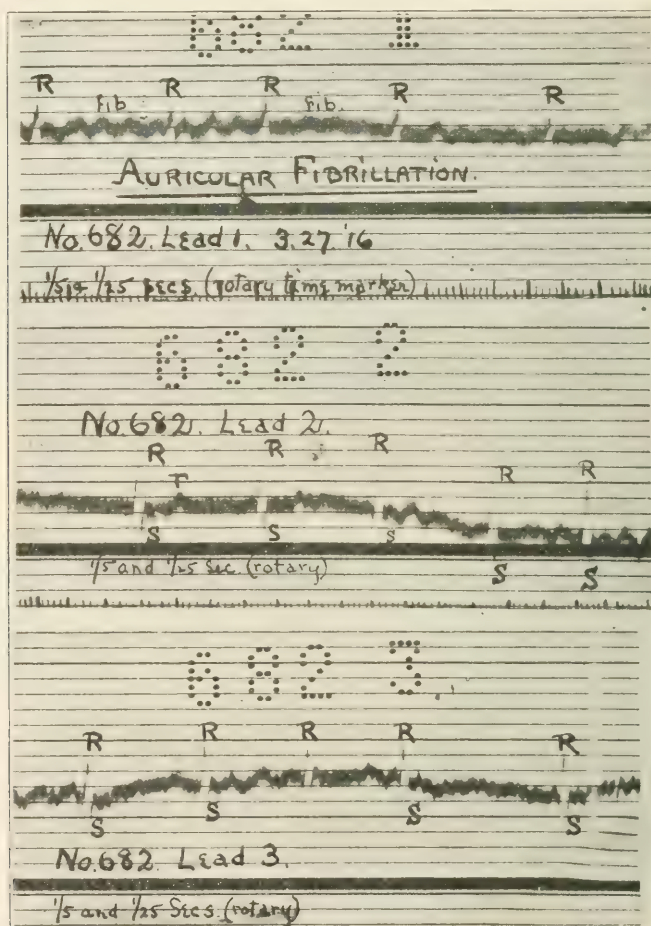 682 1
R R R R R
Fib. Fib.
AURICULAR FIBRILLATION.
No. 682. Lead 1. 3.27.'16
1/5 & 1/25 secs. (rotary time marker)
682 2
No. 682. Lead 2.
R R R R R
T
S S S S S
1/5 and 1/25 Sec. (rotary)
682 3
R R R R R
S S S S
No. 682 Lead 3.
1/5 and 1/25 Secs. (rotary)